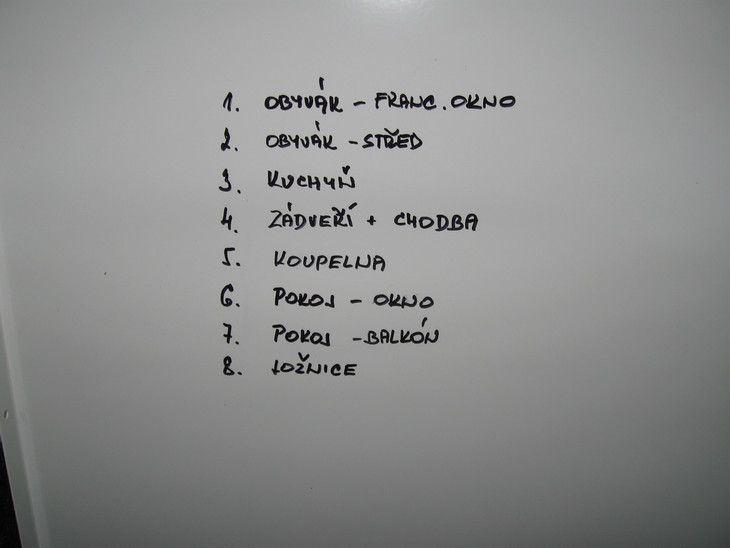 1. OBYVÁK - FRANC. OKNO
2. OBYVÁK - STŘED
3. KUCHYŇ
4. ZÁDVEŘÍ + CHODBA
5. KOUPELNA
6. POKOJ - OKNO
7. POKOJ - BALKÓN
8. LOŽNICE